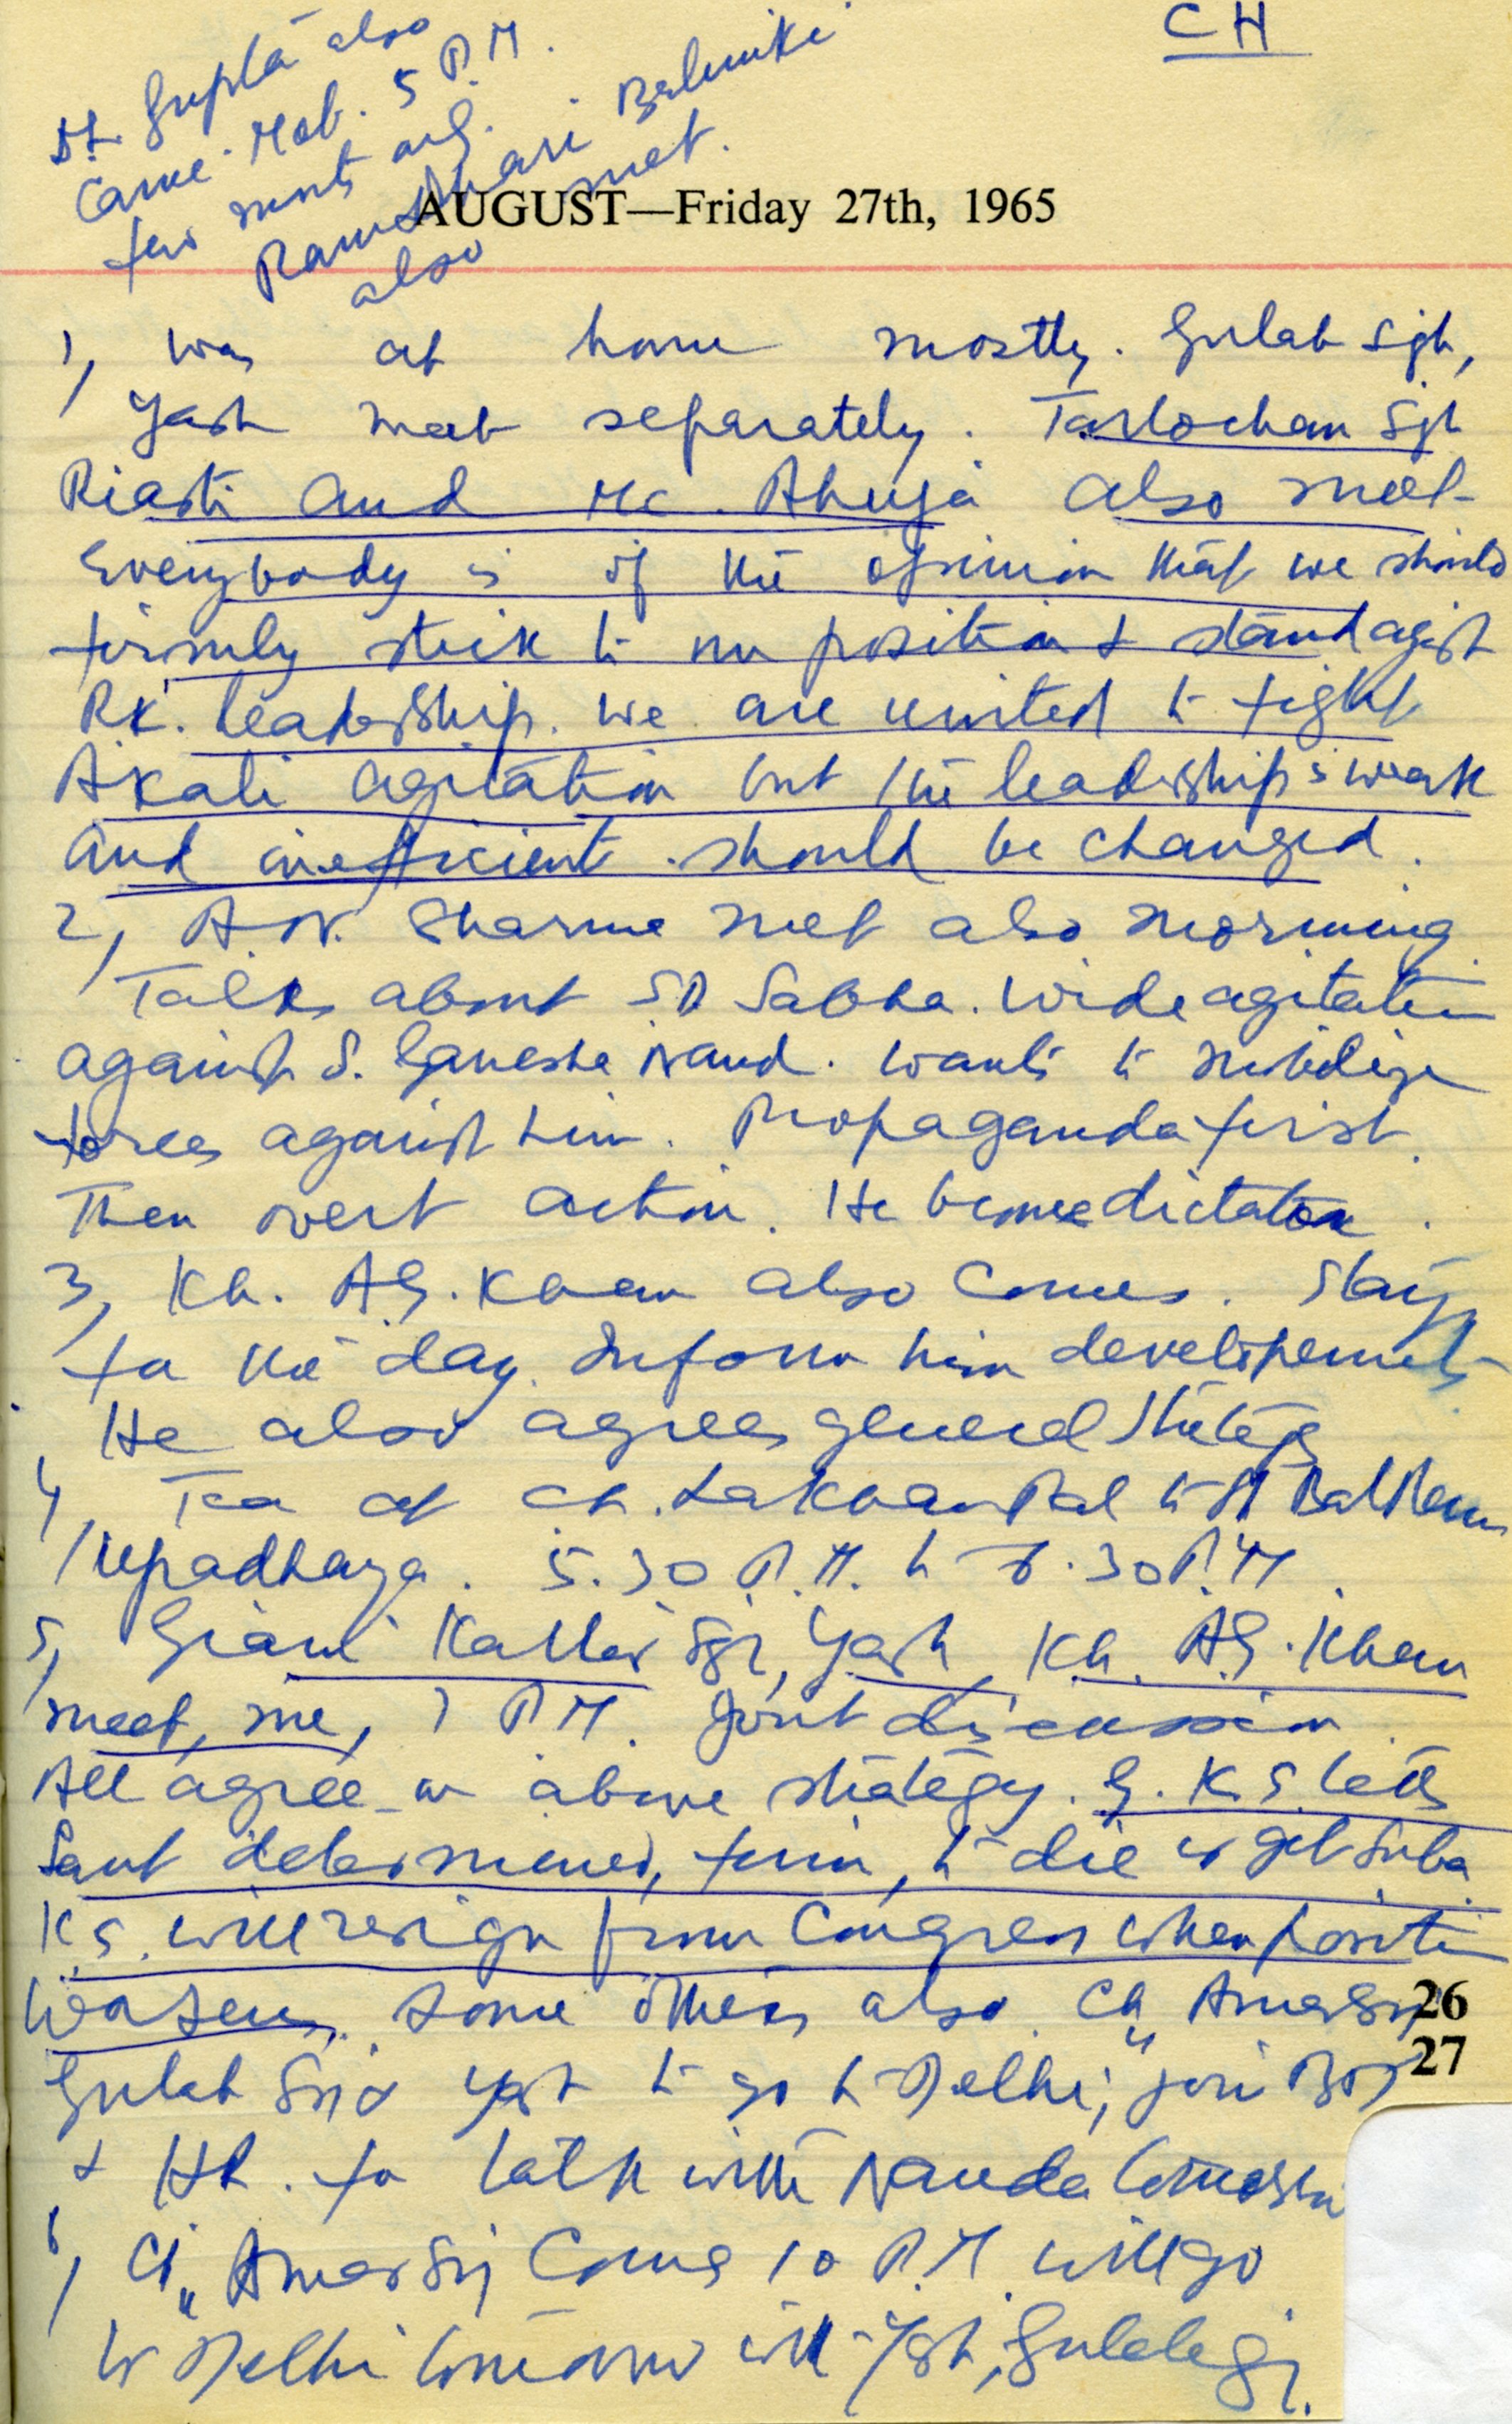 CH
Dr. Gupta also
came. Mob. 5 P.M.
few
Ram Dhari Balmiki
also met.
AUGUST—Friday 27th, 1965
1, Was at home mostly. Gulab Sgh,
Yash meet separately. Tarlochan Sgh
Riasti and Mc. Ahuja also meet
Everybody is of the opinion that we should
firmly stick to our position & stand agst
RK. leadership. We are united to fight
Akali agitation but the leadership is weak
and inefficient. should be changed.
2, A.N. Sharma met also morning.
Talks about SD Sabha. Wide agitation
against S. Ganesha Nand. Wants to mobilize
forces against him. Propaganda first.
Then overt action. He become dictator.
3, Kh. AG. Khan also comes. Stays
for the day. Inform him developements
He also agrees general strategy
4, Tea at Ch. Lakhan Pal to Pt Bal Ram
Upadhaya. 5.30 P.M. to 6.30 P.M.
5, Giani Kartar Sgh, Yash, Kh. AG. Khan
meet, me, 7 P.M. Joint discussion.
All agree on above strategy. G.K.S. tells
Sant determined, firm, to die or get Suba
K.S. will resign from Congress when position
worsens. Some others also. Ch. Amar Sgh
26
27
Gulab Sgh & Yash to go to Delhi, join
& HR. to talk with Nanda tomorrow
6, Ch. Amar Sgh come 10 P.M. will go
to Delhi tomorrow with Yash, Gulab Sgh.